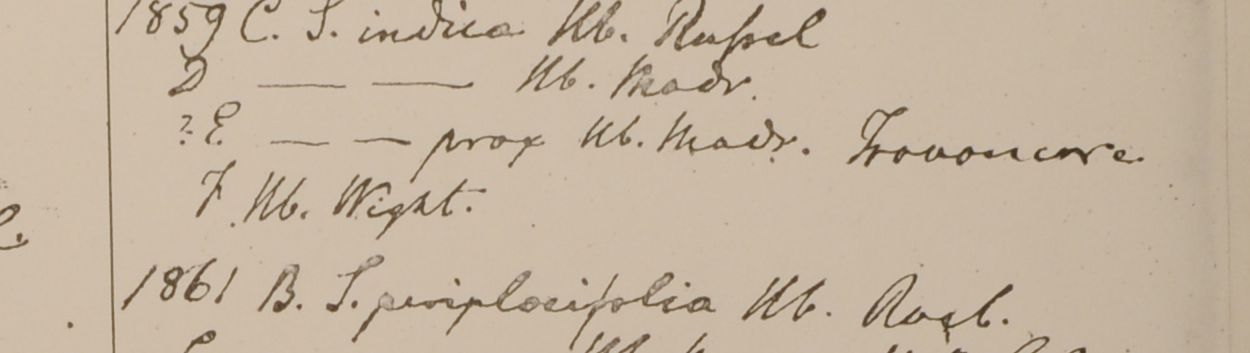 1859 C. S. indica Hb. Russel
D — — Hb. Madr.
? E — — prox Hb. Madr. Travancore
F. Hb. Wight.
1861 B. S. periplocifolia Hb. Roxb.